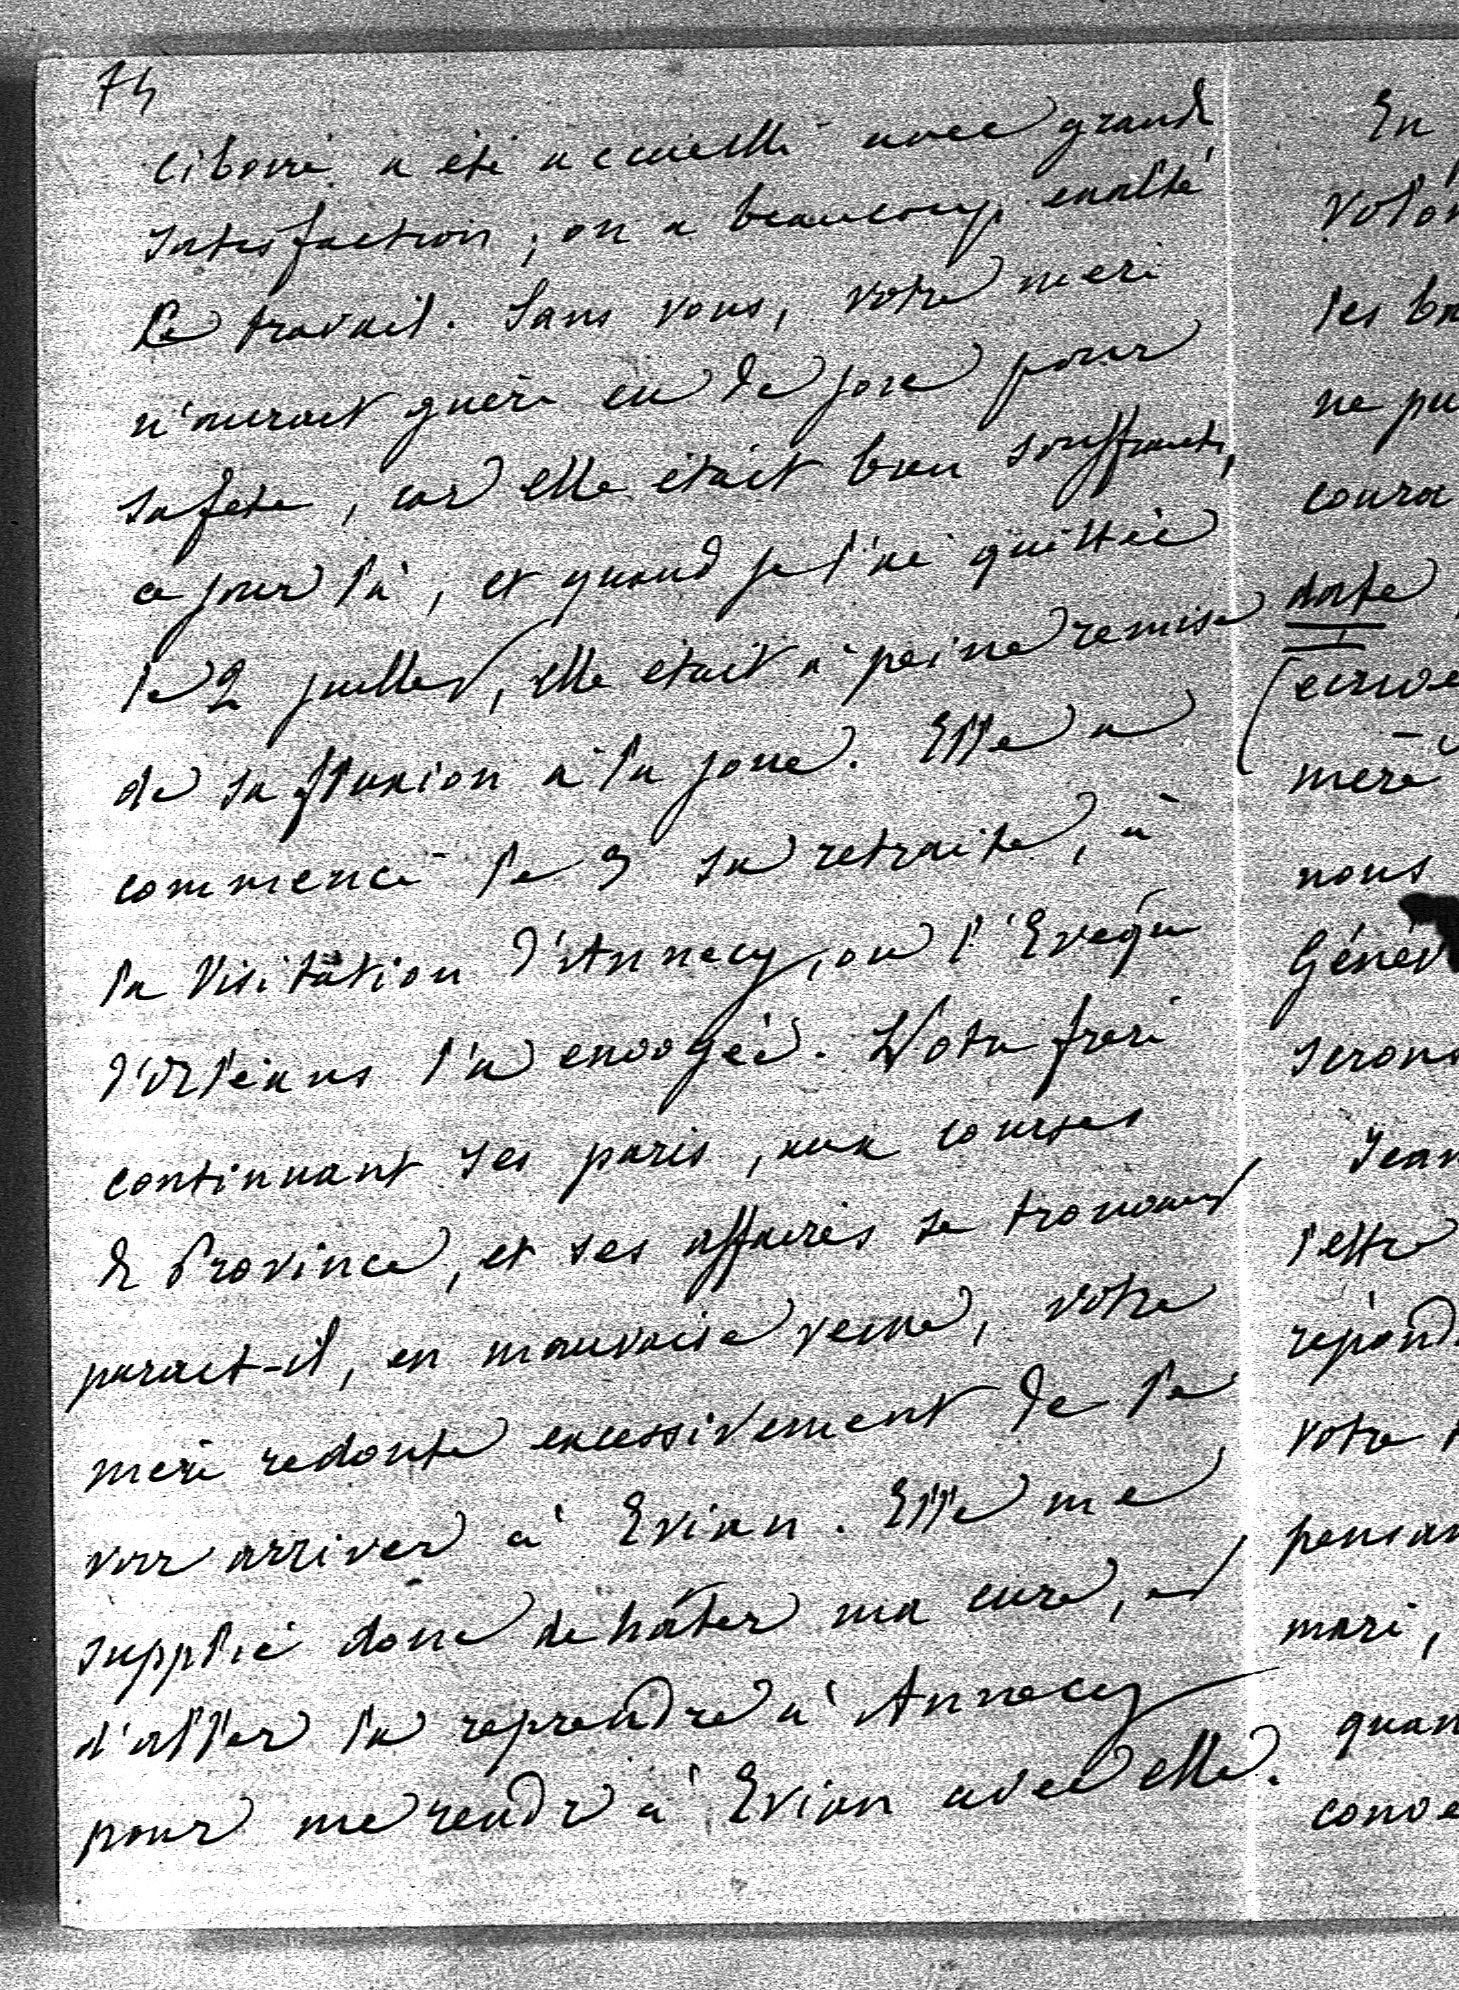 74
ciboire a été accueilli avec grande
satisfaction, on a beaucoup exalté
le travail. Sans vous, votre mère
n'aurait guère eu de joie pour
sa fête, car elle était bien souffrante,
ce jour là, et quand je l'ai quittée
le 2 juillet, elle était à peine remise
de sa fluxion à la joue. Elle a
commencé le 3 sa retraite, à
la Visitation d'Annecy, où l'Evêque
d'Orléans l'a envoyée. Votre frère
continuant ses paris, aux courses
de Province, et ses affaires se trouvant
parait-il, en mauvaise veine, votre
mère redoute excessivement de le
voir arriver à Evian. Elle me
supplie donc de hâter ma cure, et
d'aller la reprendre à Annecy
pour me rendre à Evian avec elle.
En
volon
les
ne pu
coura
dorte
écrive
mère
nous
Génév
serons
Jean
lettre
répond
votre
pensan
mari,
quan
conve